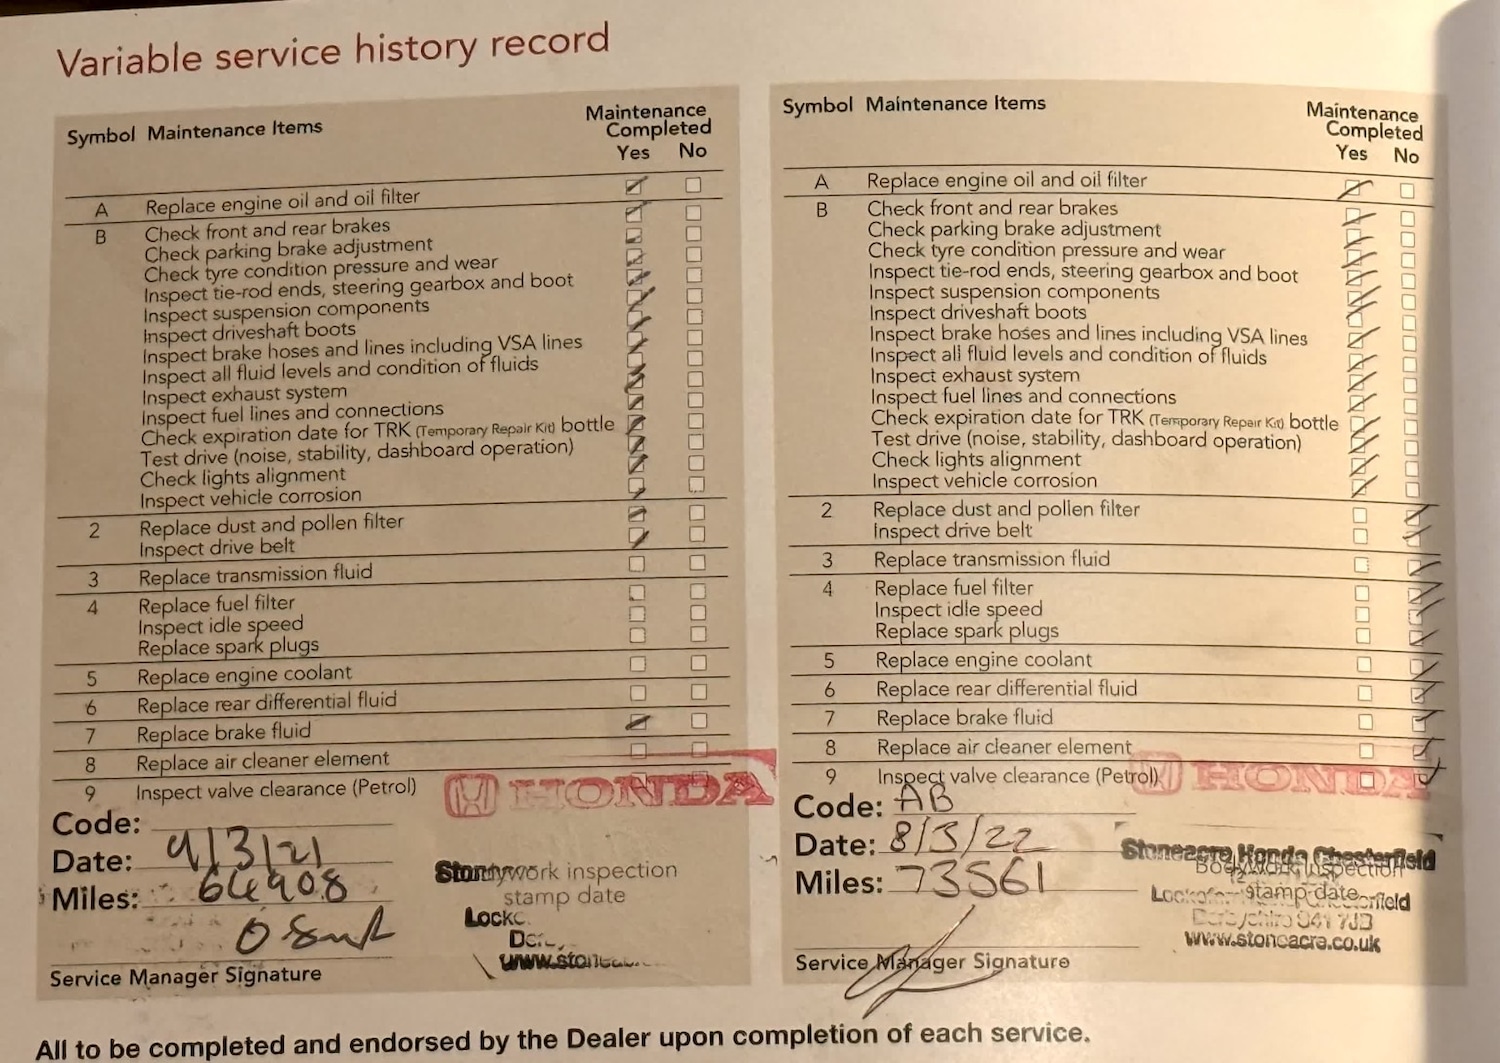 Variable service history record
Symbol Maintenance Items Maintenance Completed
Yes No
A Replace engine oil and oil filter
B Check front and rear brakes
Check parking brake adjustment
Check tyre condition pressure and wear
Inspect tie-rod ends, steering gearbox and boot
Inspect suspension components
Inspect driveshaft boots
Inspect brake hoses and lines including VSA lines
Inspect all fluid levels and condition of fluids
Inspect exhaust system
Inspect fuel lines and connections
Check expiration date for TRK (Temporary Repair Kit) bottle
Test drive (noise, stability, dashboard operation)
Check lights alignment
Inspect vehicle corrosion
2 Replace dust and pollen filter
Inspect drive belt
3 Replace transmission fluid
4 Replace fuel filter
Inspect idle speed
Replace spark plugs
5 Replace engine coolant
6 Replace rear differential fluid
7 Replace brake fluid
8 Replace air cleaner element
9 Inspect valve clearance (Petrol)
HONDA
Code:
Date: 9/3/21
Miles: 64908
inspection
stamp date
Service Manager Signature
Symbol Maintenance Items Maintenance Completed
Yes No
A Replace engine oil and oil filter
B Check front and rear brakes
Check parking brake adjustment
Check tyre condition pressure and wear
Inspect tie-rod ends, steering gearbox and boot
Inspect suspension components
Inspect driveshaft boots
Inspect brake hoses and lines including VSA lines
Inspect all fluid levels and condition of fluids
Inspect exhaust system
Inspect fuel lines and connections
Check expiration date for TRK (Temporary Repair Kit) bottle
Test drive (noise, stability, dashboard operation)
Check lights alignment
Inspect vehicle corrosion
2 Replace dust and pollen filter
Inspect drive belt
3 Replace transmission fluid
4 Replace fuel filter
Inspect idle speed
Replace spark plugs
5 Replace engine coolant
6 Replace rear differential fluid
7 Replace brake fluid
8 Replace air cleaner element
9 Inspect valve clearance (Petrol)
HONDA
Code: AB
Date: 8/3/22
Miles: 73561
Stoneacre Honda Chesterfield
Bodywork inspection
stamp date
www.stoneacre.co.uk
Service Manager Signature
All to be completed and endorsed by the Dealer upon completion of each service.